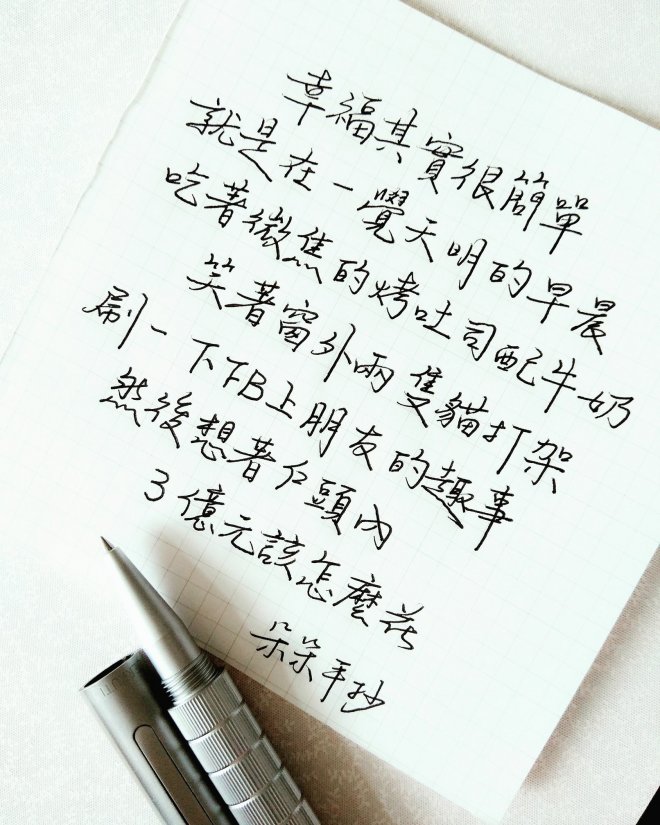 幸福其實很簡單
就是在一覺天明的早晨
吃著微焦的烤吐司配牛奶
笑著窗外兩隻貓打架
刷一下FB上朋友的趣事
然後想著戶頭內
3億元該怎麼花
朵朵手抄